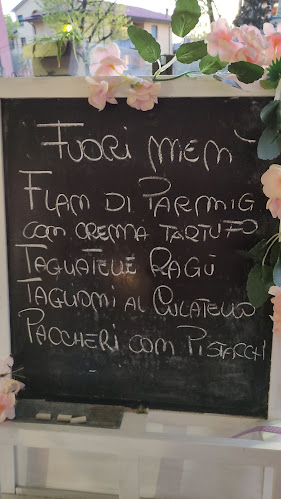 FUORI MENÙ
FLAN DI PARMIG
CON CREMA TARTUFO
TAGLIATELLE RAGÙ
TAGLIOLINI AL CULATELLO
PACCHERI CON PISTACCHI